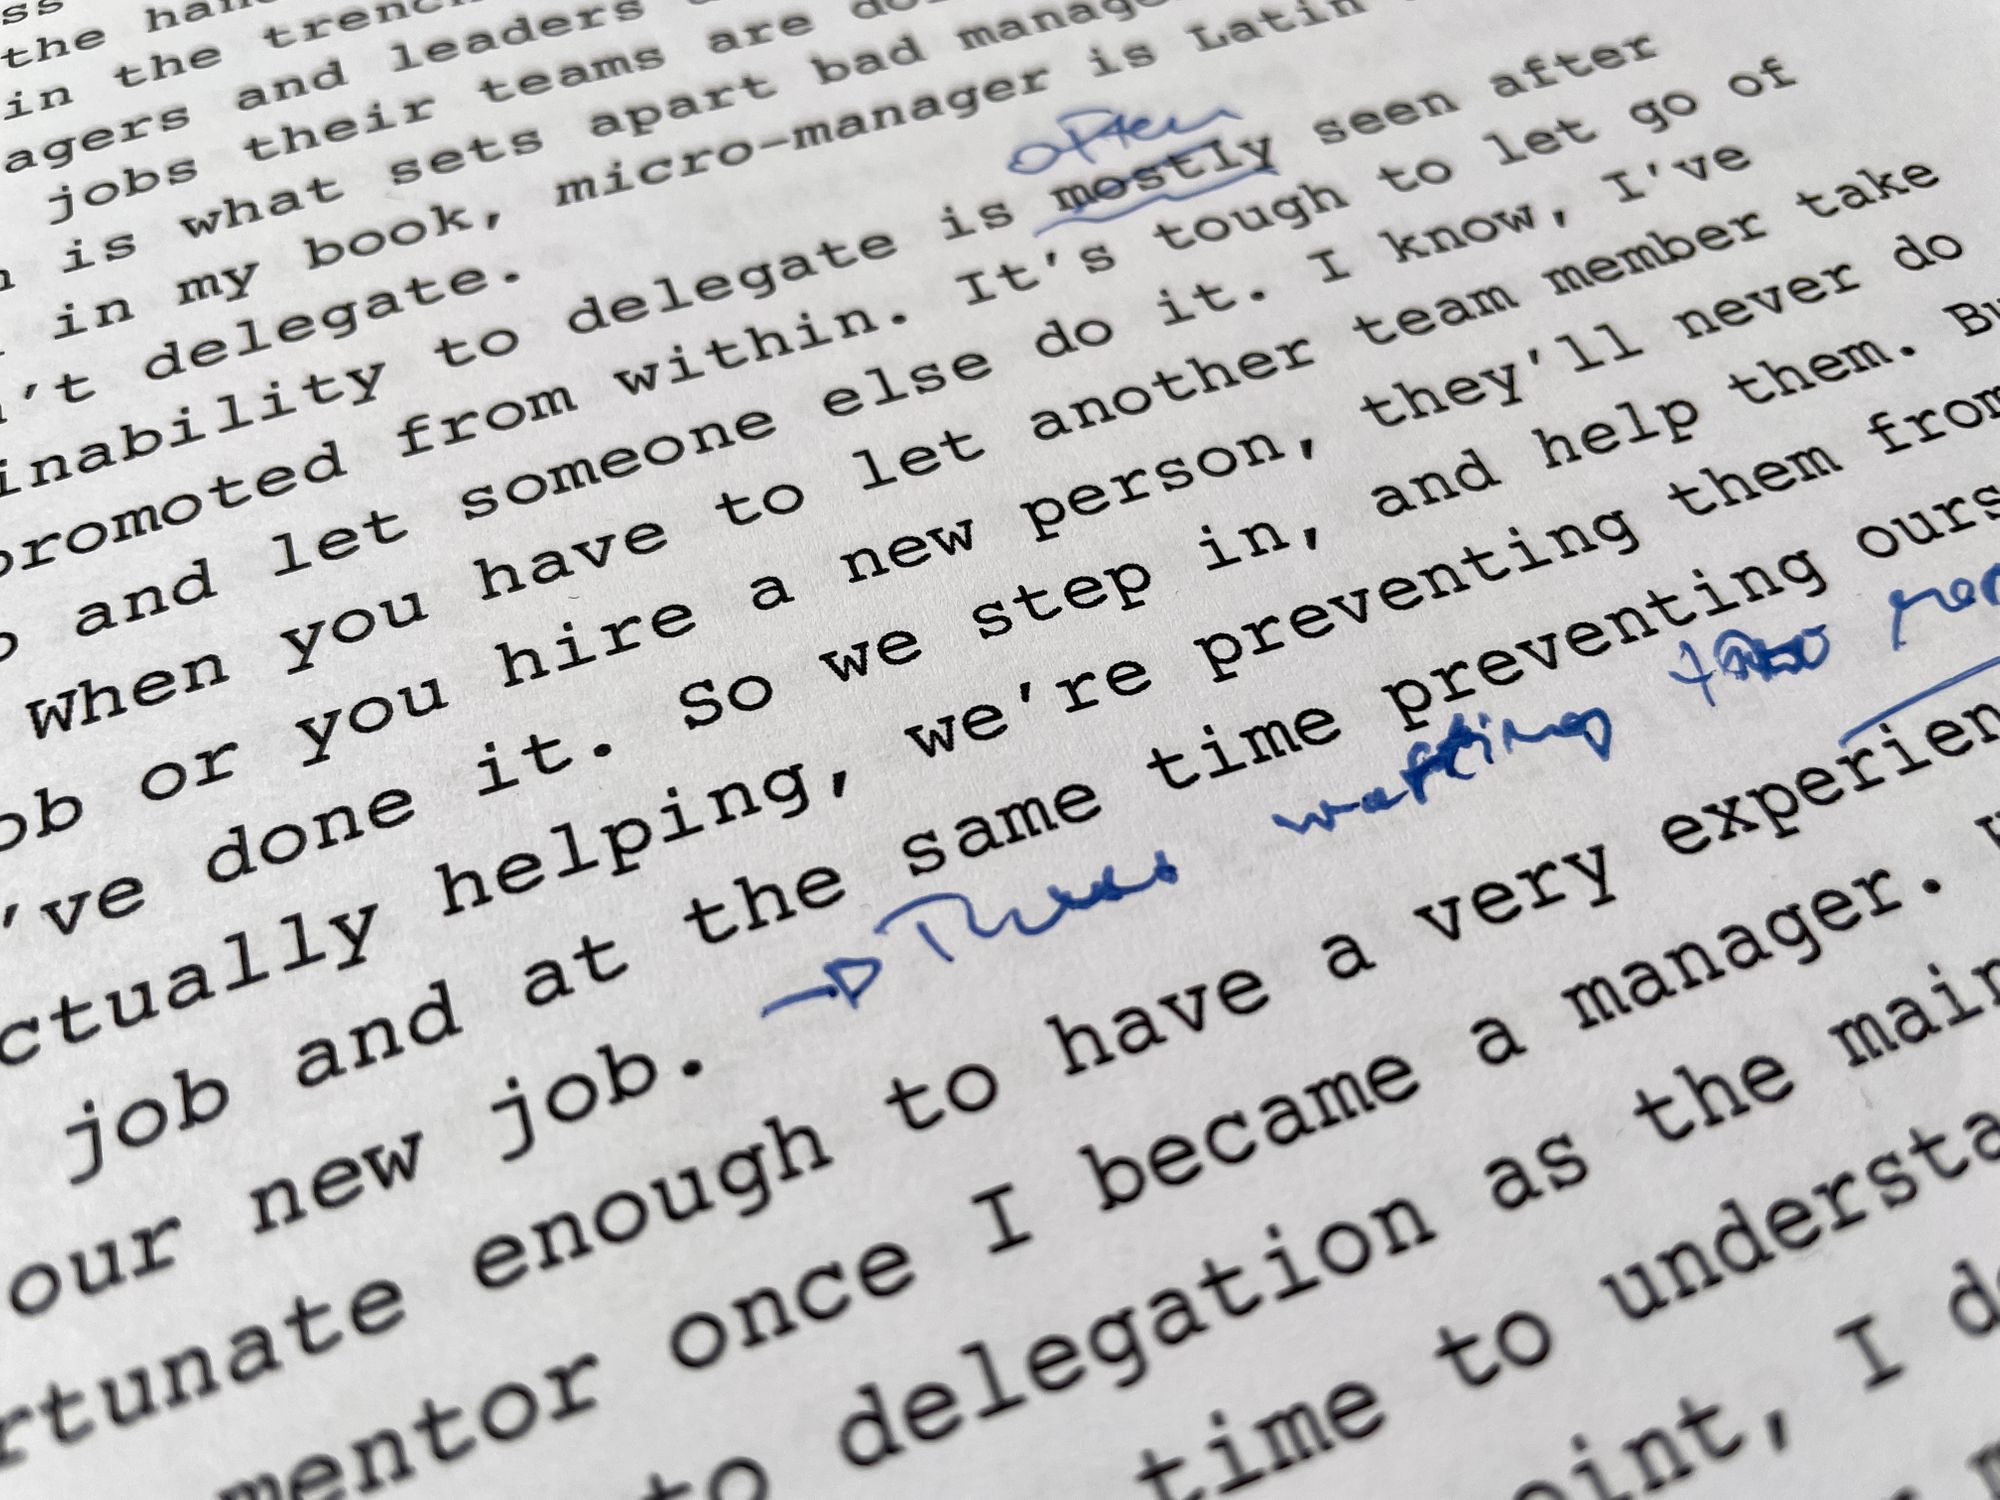 the
in the
agers and leaders
jobs their teams are
is what sets apart bad
in my book, micro-manager is Latin
't delegate.
often
inability to delegate is mostly seen after
promoted from within. It's tough to let go of
and let someone else do it. I know, I've
When you have to let another team member take
ob or you hire a new person, they'll never do
've done it. So we step in, and help them. Bu
ctually helping, we're preventing them from
job and at the same time preventing ours
our new job.
rtunate enough to have a very experien
mentor once I became a manager.
to delegation as the main
time to understa
oint, I